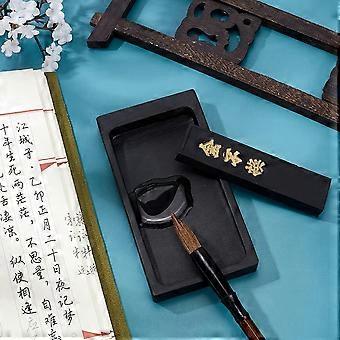 江城子·乙卯正月二十日夜记梦
十年生死两茫茫，不思量，自难忘
凄凉。纵使相逢应
金不換